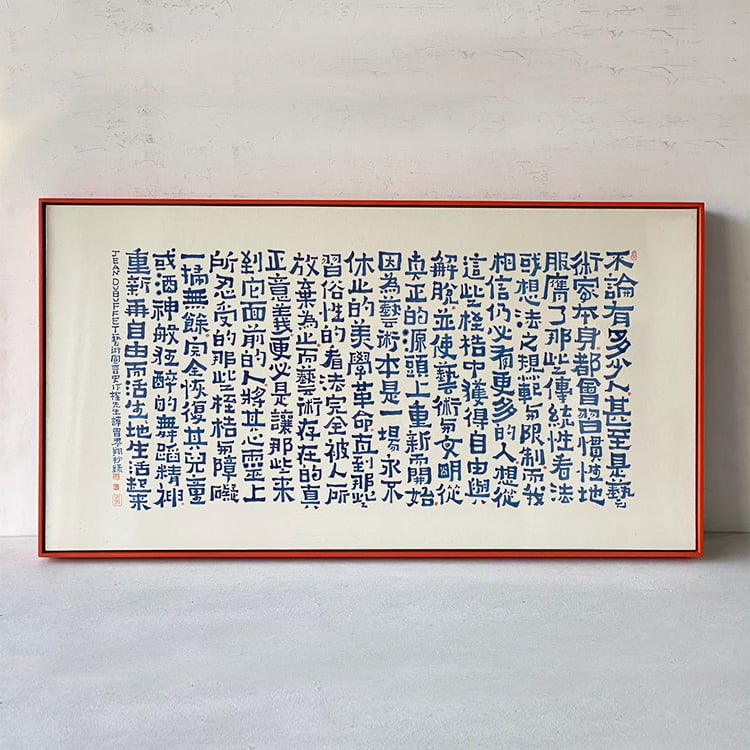 不論有多少人甚至是藝
術家本身都會習慣性地
服膺了那些傳統性看法
或想法之規範與限制而我
相信仍必有更多的人想從
這些桎梏中獲得自由與
解脫並使藝術與文明從
真正的源頭上重新開始
因為藝術本是一場永不
休止的美學革命直到那些
習俗性的看法完全被人所
放棄為止而藝術存在的真
正意義更必是讓那些來
到它面前的人將其心靈上
所忍受的那些桎梏與障礙
一掃無餘完全恢復其兒童
或酒神般狂醉的舞蹈精神
重新再自由而活生地生活起來
JEAN DUBUFFET藝術宣言史作檉先生譯